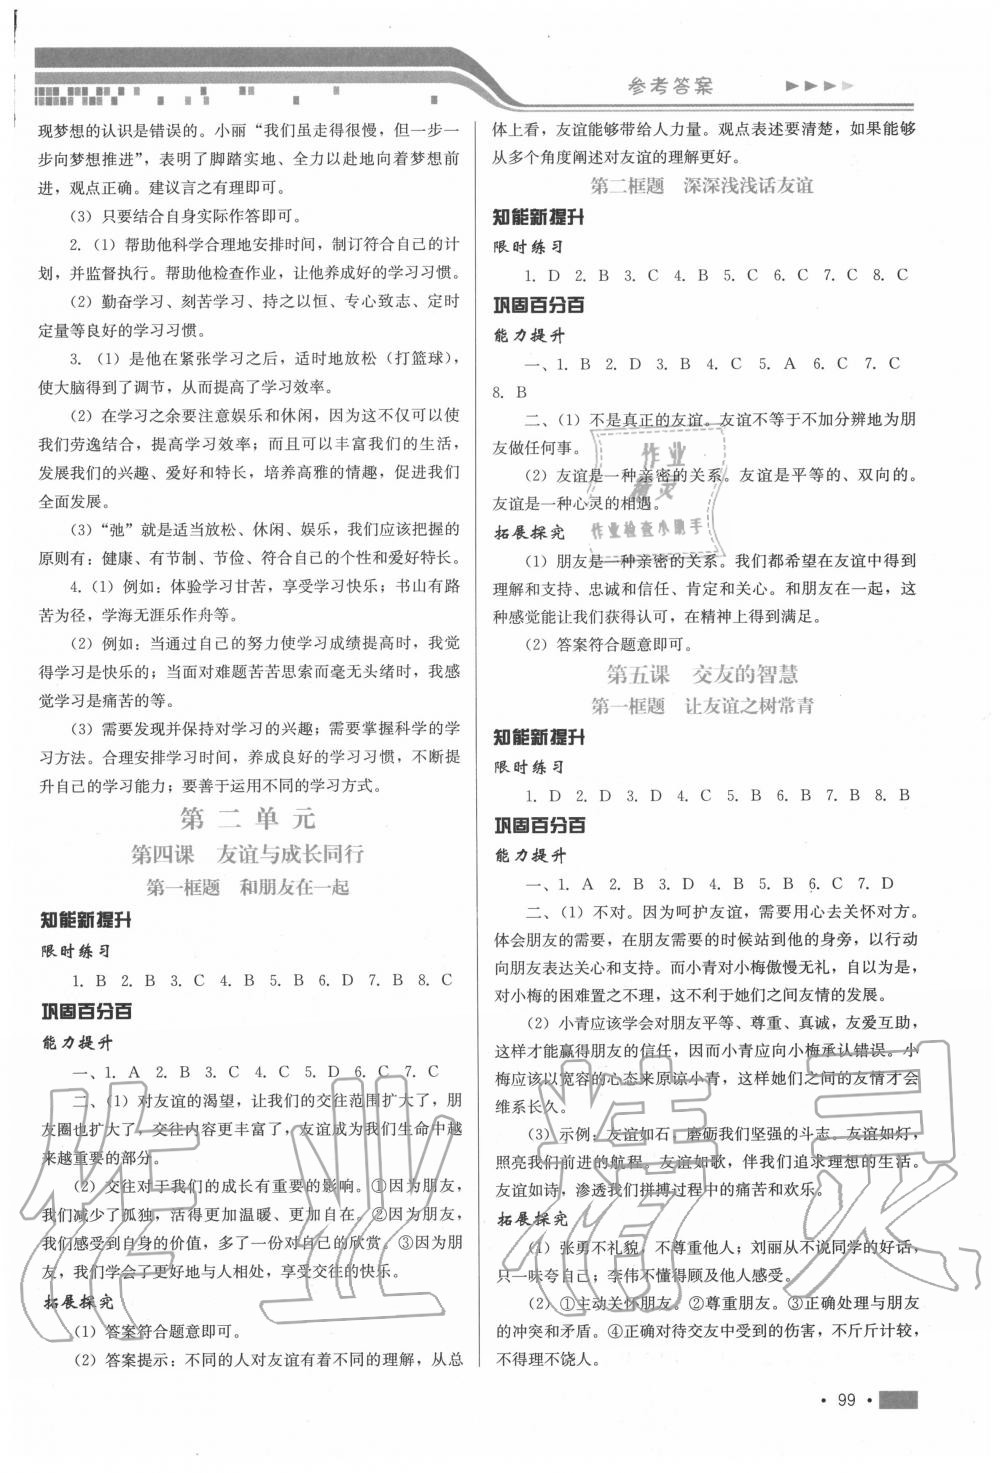 参考答案
现梦想的认识是错误的。小丽“我们虽走得很慢，但一步一
步向梦想推进”，表明了脚踏实地、全力以赴地向着梦想前
进，观点正确。建议言之有理即可。
（3）只要结合自身实际作答即可。
2.（1）帮助他科学合理地安排时间，制订符合自己的计
划，并监督执行。帮助他检查作业，让他养成好的学习习惯。
（2）勤奋学习、刻苦学习、持之以恒、专心致志、定时
定量等良好的学习习惯。
3.（1）是他在紧张学习之后，适时地放松（打篮球），
使大脑得到了调节，从而提高了学习效率。
（2）在学习之余要注意娱乐和休闲，因为这不仅可以使
我们劳逸结合，提高学习效率；而且可以丰富我们的生活，
发展我们的兴趣、爱好和特长，培养高雅的情趣，促进我们
全面发展。
（3）“弛”就是适当放松、休闲、娱乐，我们应该把握的
原则有：健康、有节制、节俭、符合自己的个性和爱好特长。
4.（1）例如：体验学习甘苦，享受学习快乐；书山有路
苦为径，学海无涯乐作舟等。
（2）例如：当通过自己的努力使学习成绩提高时，我觉
得学习是快乐的；当面对难题苦苦思索而毫无头绪时，我感
觉学习是痛苦的等。
（3）需要发现并保持对学习的兴趣；需要掌握科学的学
习方法。合理安排学习时间，养成良好的学习习惯，不断提
升自己的学习能力；要善于运用不同的学习方式。
第二单元
第四课 友谊与成长同行
第一框题 和朋友在一起
知能新提升
限时练习
1. B 2. B 3. C 4. B 5. B 6. D 7. B 8. C
巩固百分百
能力提升
一、1. A 2. B 3. C 4. C 5. D 6. C 7. C
二、（1）对友谊的渴望，让我们的交往范围扩大了，朋
友圈也扩大了，交往内容更丰富了，友谊成为我们生命中越
来越重要的部分。
（2）交往对于我们的成长有重要的影响。①因为朋友，
我们减少了孤独，活得更加温暖、更加自在。②因为朋友，
我们感受到自身的价值，多了一份对自己的欣赏。③因为朋
友，我们学会了更好地与人相处，享受交往的快乐。
拓展探究
（1）答案符合题意即可。
（2）答案提示：不同的人对友谊有着不同的理解，从总
体上看，友谊能够带给人力量。观点表述要清楚，如果能够
从多个角度阐述对友谊的理解更好。
第二框题 深深浅浅话友谊
知能新提升
限时练习
1. D 2. B 3. C 4. B 5. C 6. C 7. C 8. C
巩固百分百
能力提升
一、1. B 2. D 3. B 4. C 5. A 6. C 7. C
8. B
二、（1）不是真正的友谊。友谊不等于不加分辨地为朋
友做任何事。
（2）友谊是一种亲密的关系。友谊是平等的、双向的。
友谊是一种心灵的相遇。
拓展探究
（1）朋友是一种亲密的关系。我们都希望在友谊中得到
理解和支持、忠诚和信任、肯定和关心。和朋友在一起，这
种感觉能让我们获得认可，在精神上得到满足。
（2）答案符合题意即可。
第五课 交友的智慧
第一框题 让友谊之树常青
知能新提升
限时练习
1. D 2. D 3. D 4. C 5. B 6. B 7. B 8. B
巩固百分百
能力提升
一、1. A 2. B 3. D 4. C 5. B 6. C 7. D
二、（1）不对。因为呵护友谊，需要用心去关怀对方。
体会朋友的需要，在朋友需要的时候站到他的身旁，以行动
向朋友表达关心和支持。而小青对小梅傲慢无礼，自以为是，
对小梅的困难置之不理，这不利于她们之间友情的发展。
（2）小青应该学会对朋友平等、尊重、真诚，友爱互助，
这样才能赢得朋友的信任，因而小青应向小梅承认错误。小
梅应该以宽容的心态来原谅小青，这样她们之间的友情才会
维系长久。
（3）示例：友谊如石，磨砺我们坚强的斗志。友谊如灯，
照亮我们前进的航程。友谊如歌，伴我们追求理想的生活。
友谊如诗，渗透我们拼搏过程中的痛苦和欢乐。
拓展探究
（1）张勇不礼貌，不尊重他人；刘丽从不说同学的好话，
只一味夸自己；李伟不懂得顾及他人感受。
（2）①主动关怀朋友。②尊重朋友。③正确处理与朋友
的冲突和矛盾。④正确对待交友中受到的伤害，不斤斤计较，
不得理不饶人。
作业
精灵
作业检查小助手
作业精灵
• 99 •